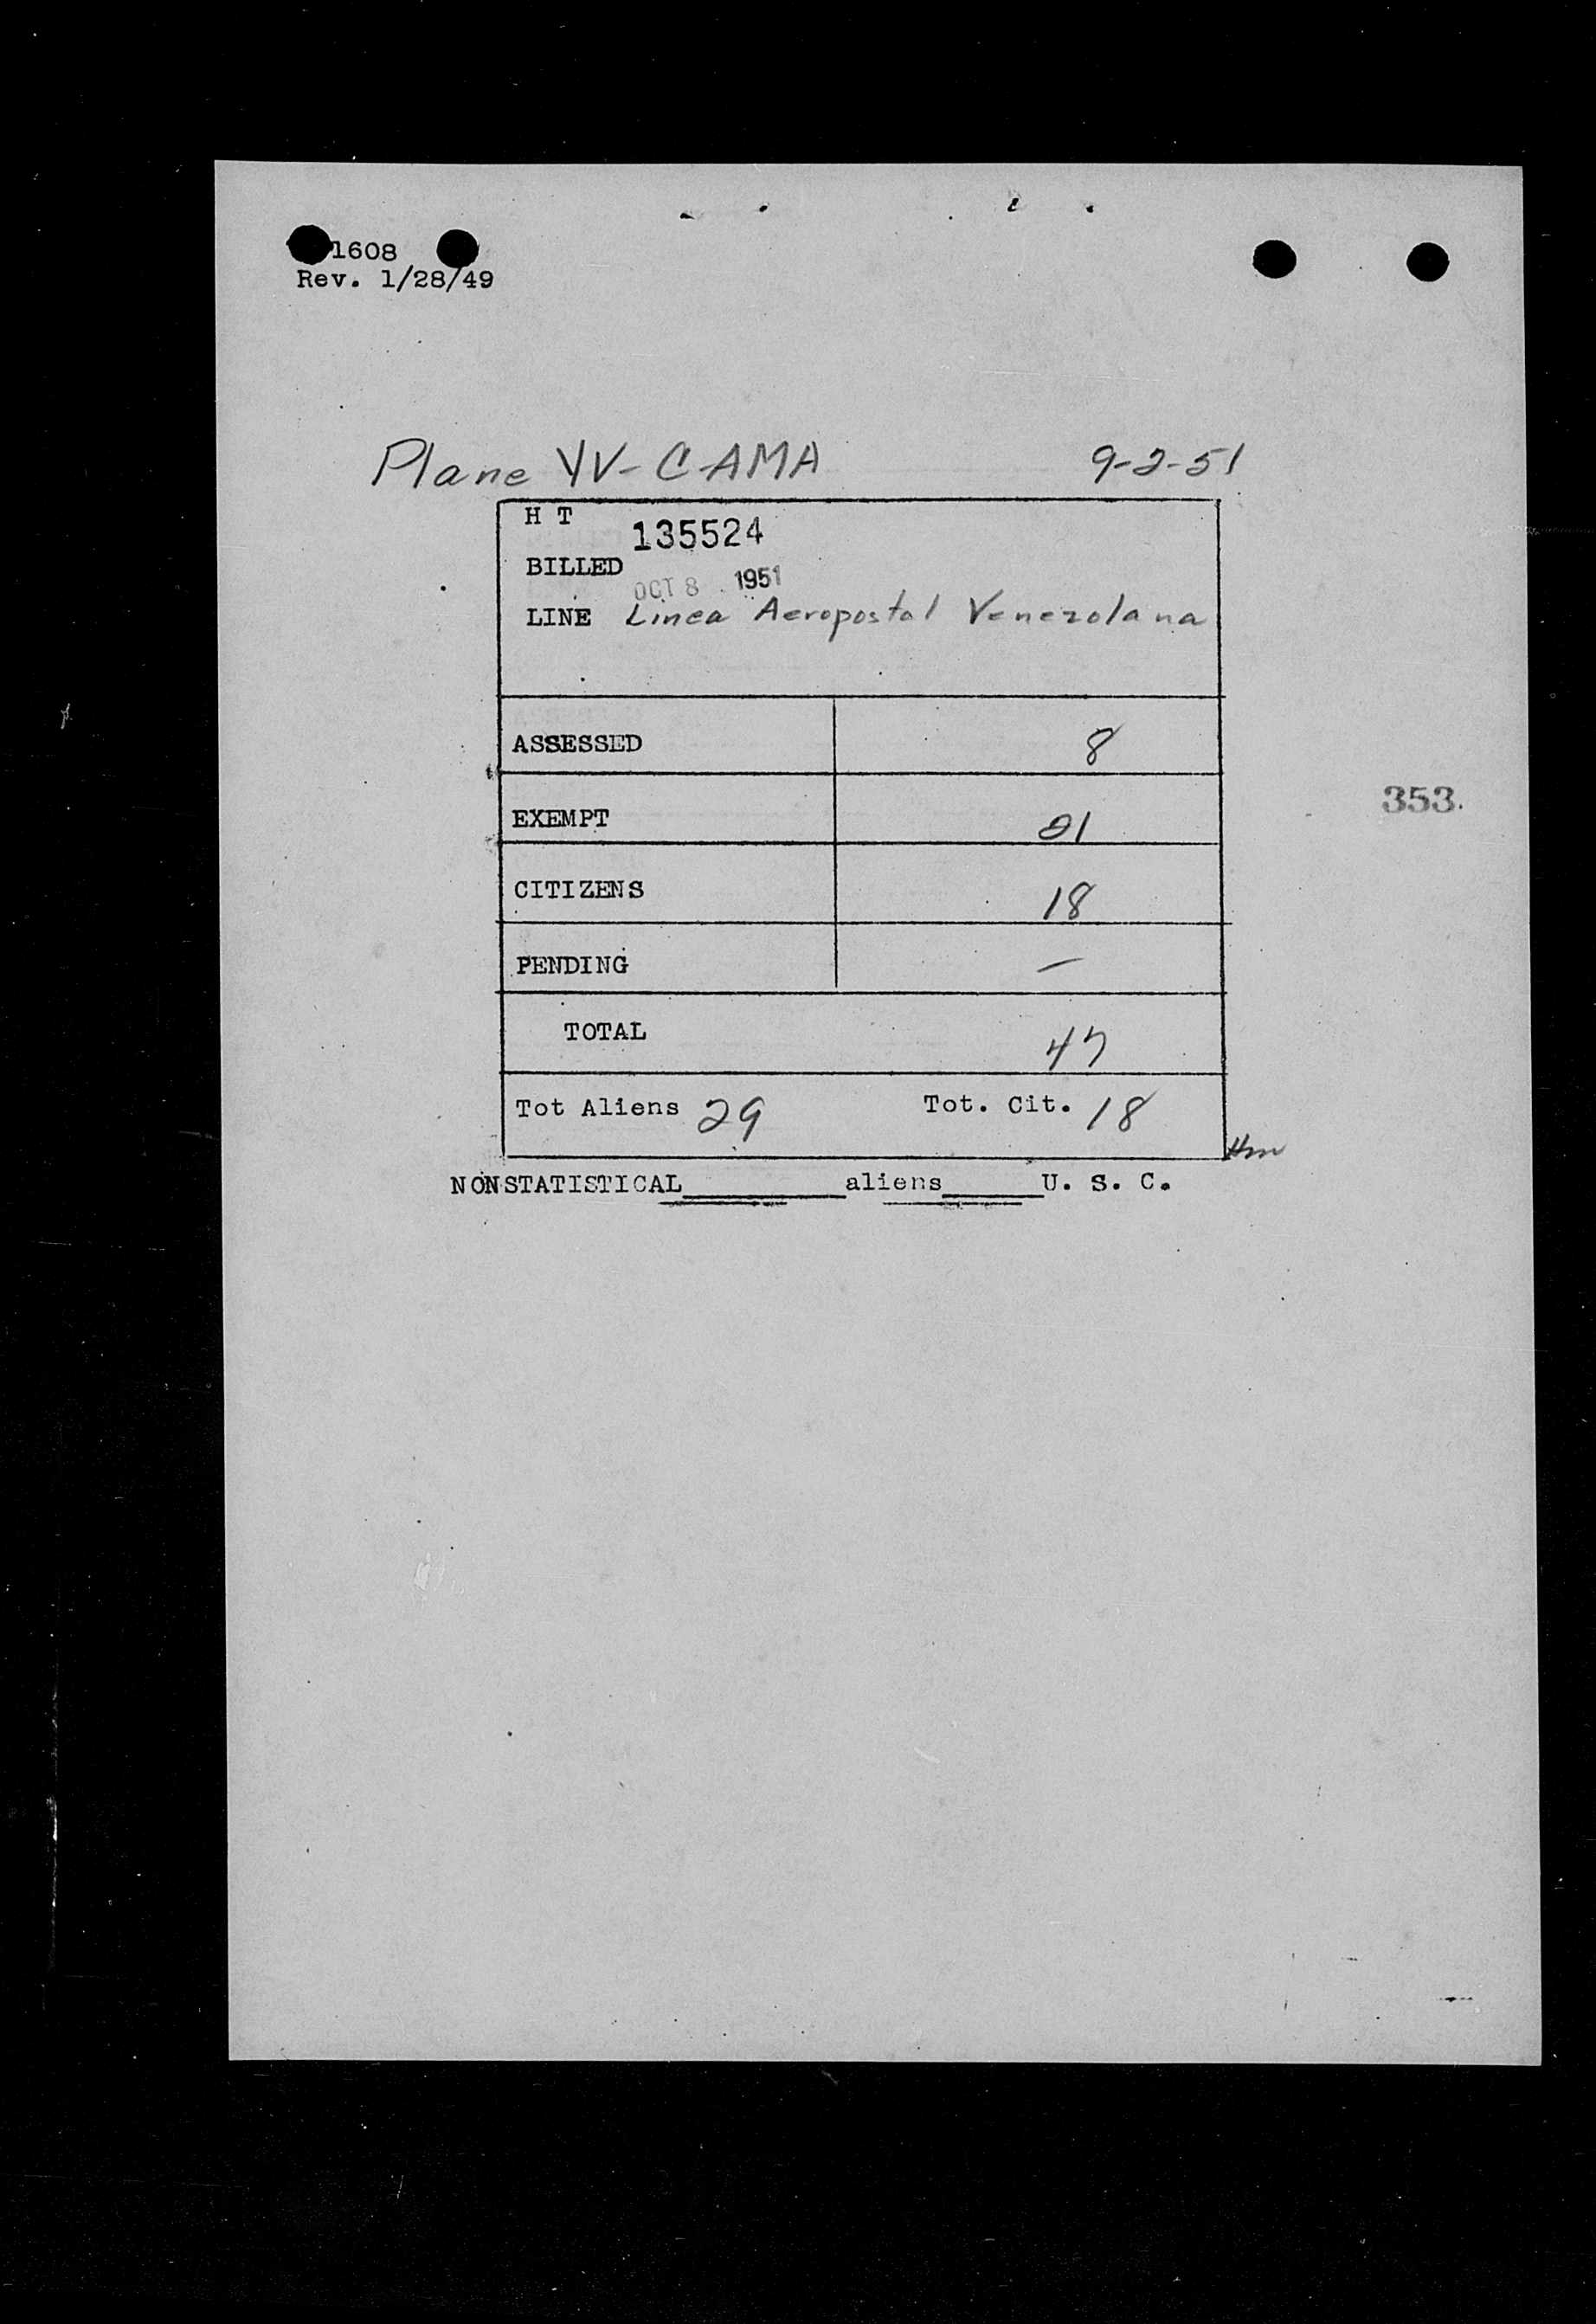 1608
Rev. 1/28/49
Plane YV-C-AMA 9-2-51
H T 135524
BILLED OCT 8 1951
LINE Linea Aeropostal Venezolana
ASSESSED 8
353.
EXEMPT 21
CITIZENS 18
PENDING —
TOTAL 47
Tot Aliens 29 Tot. Cit. 18
NONSTATISTICAL________aliens_____U. S. C.